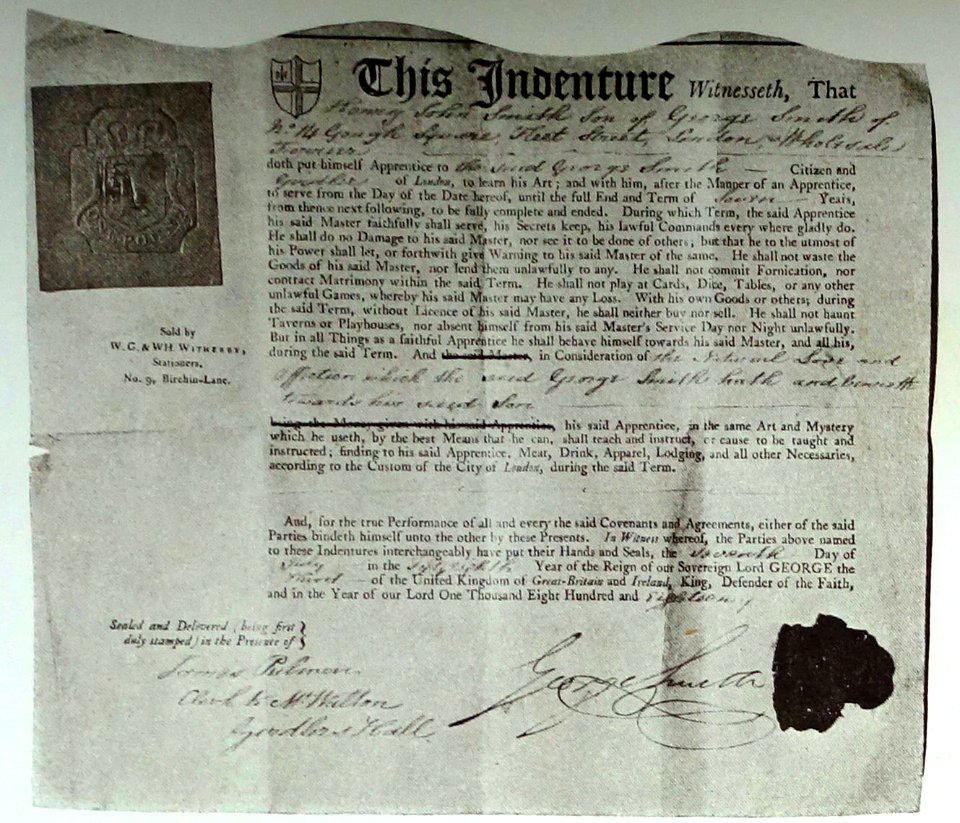 This Indenture Witnesseth, That
Henry John Smith Son of George Smith of
No 14 Gough Square, Fleet Street, London, Wholesale
Furrier
doth put himself Apprentice to the said George Smith Citizen and
Girdler of London, to learn his Art; and with him, after the Manner of an Apprentice,
to serve from the Day of the Date hereof, until the full End and Term of Seven Years,
from thence next following, to be fully complete and ended. During which Term, the said Apprentice
his said Master faithfully shall serve, his Secrets keep, his lawful Commands every where gladly do.
He shall do no Damage to his said Master, nor see it to be done of others; but that he to the utmost of
his Power shall let, or forthwith give Warning to his said Master of the same. He shall not waste the
Goods of his said Master, nor lend them unlawfully to any. He shall not commit Fornication, nor
contract Matrimony within the said Term. He shall not play at Cards, Dice, Tables, or any other
unlawful Games, whereby his said Master may have any Loss. With his own Goods or others; during
the said Term, without Licence of his said Master, he shall neither buy nor sell. He shall not haunt
Taverns or Playhouses, nor absent himself from his said Master's Service Day nor Night unlawfully.
But in all Things as a faithful Apprentice he shall behave himself towards his said Master, and all his,
during the said Term. And the said Master, in Consideration of the Natural Love and
affection which the said George Smith hath and beareth
towards his said Son
being the Money given with his said Apprentice, his said Apprentice, in the same Art and Mystery
which he useth, by the best Means that he can, shall teach and instruct, or cause to be taught and
instructed; finding to his said Apprentice, Meat, Drink, Apparel, Lodging, and all other Necessaries,
according to the Custom of the City of London, during the said Term.
And, for the true Performance of all and every the said Covenants and Agreements, either of the said
Parties bindeth himself unto the other by these Presents. In Witness whereof, the Parties above named
to these Indentures interchangeably have put their Hands and Seals, the Seventh Day of
July in the fifty eighth Year of the Reign of our Sovereign Lord GEORGE the
Third of the United Kingdom of Great-Britain and Ireland, King, Defender of the Faith,
and in the Year of our Lord One Thousand Eight Hundred and Eighteen
Sold by
W. C. & WH WITHERBY,
Stationers,
No. 9, Birchin-Lane.
Sealed and Delivered (being first
duly stamped) in the Presence of
James
Clerk to Mr Wilton
Girdlers Hall
George Smith